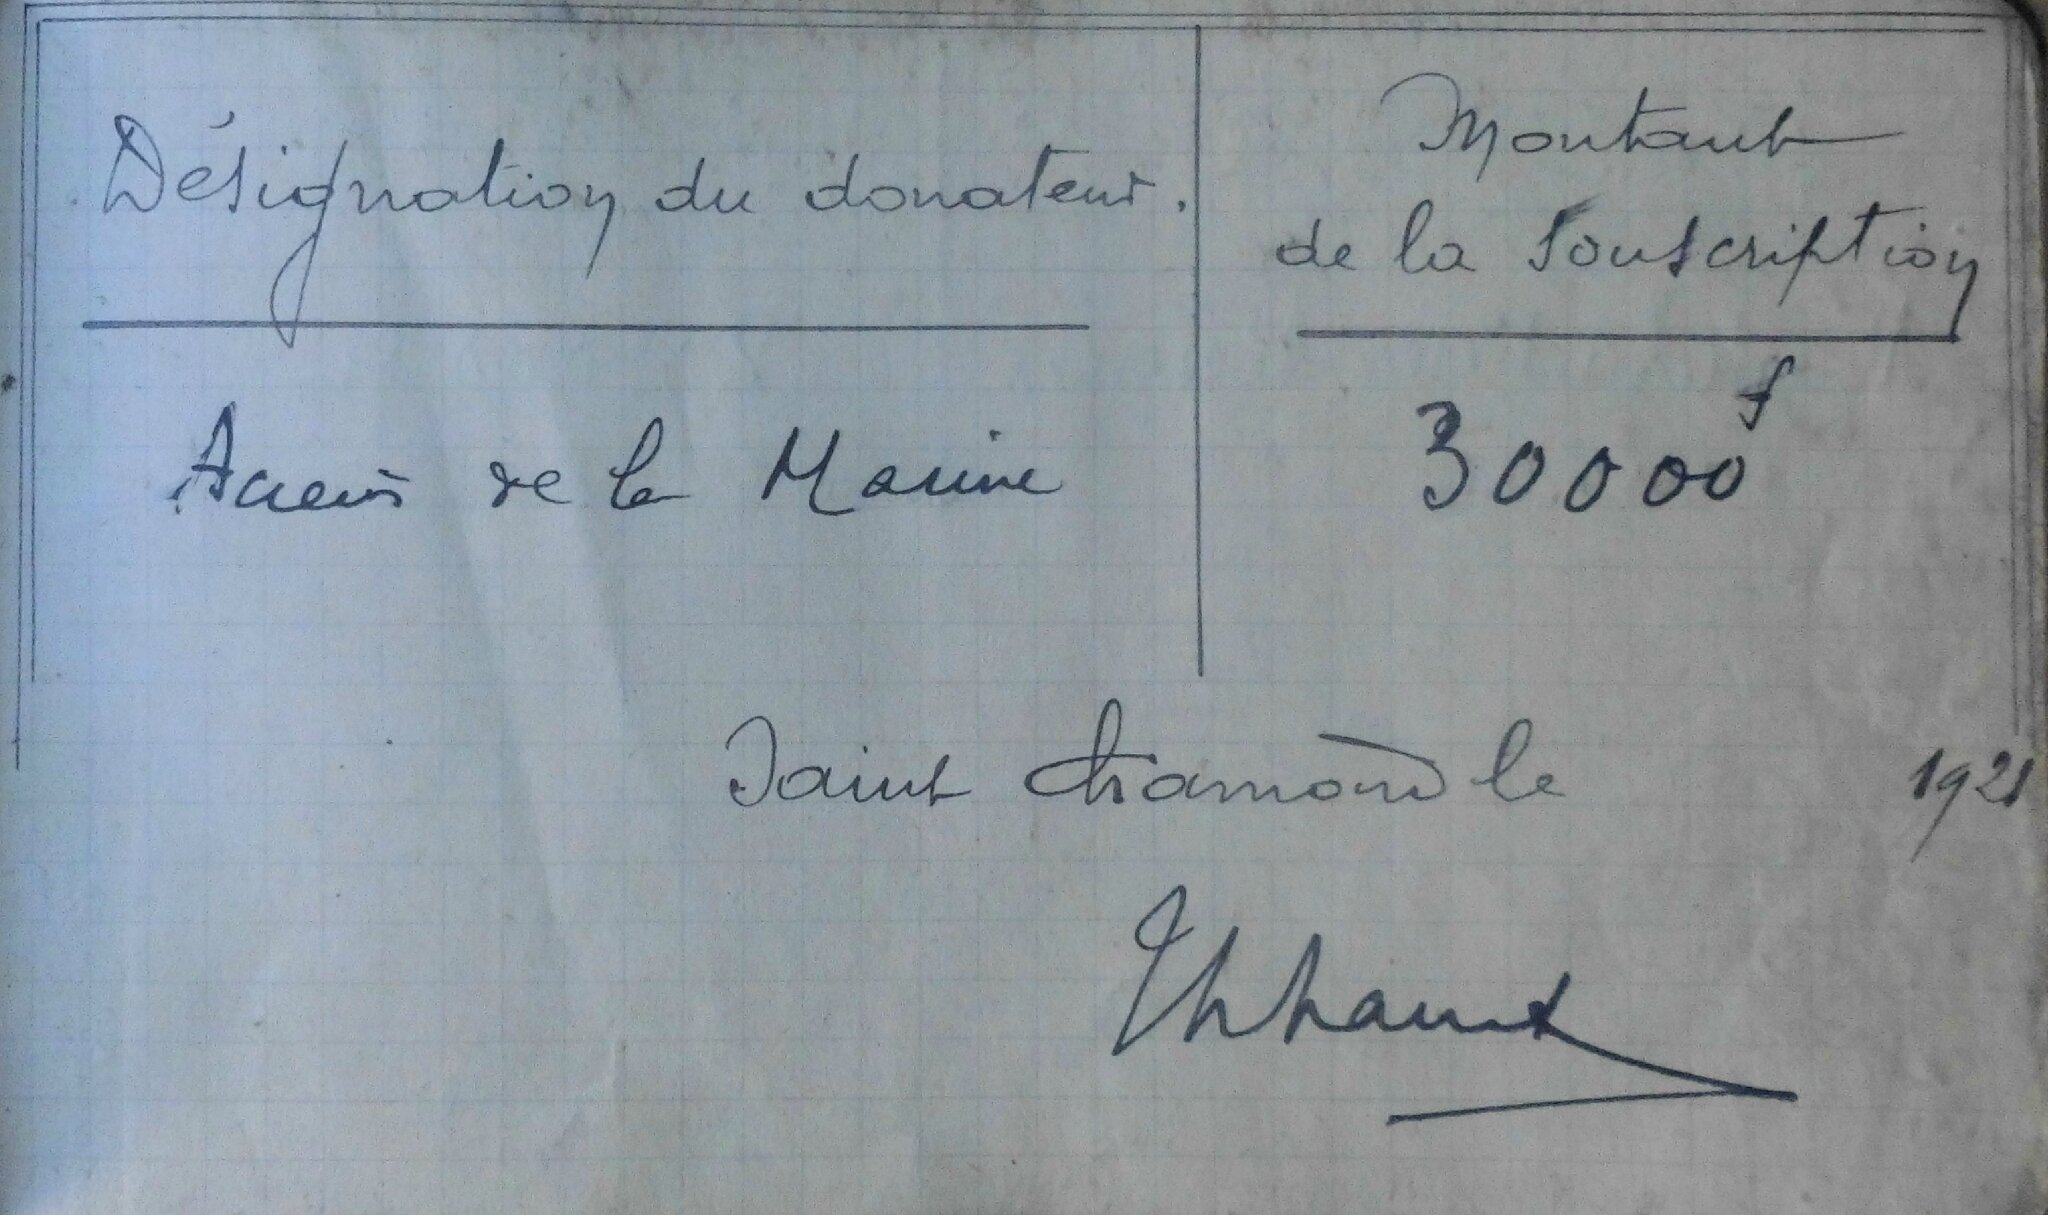 Désignation du donateur.
Montant
de la Souscription
Aciéries de la Marine
30000 f
Saint Chamond le 1921